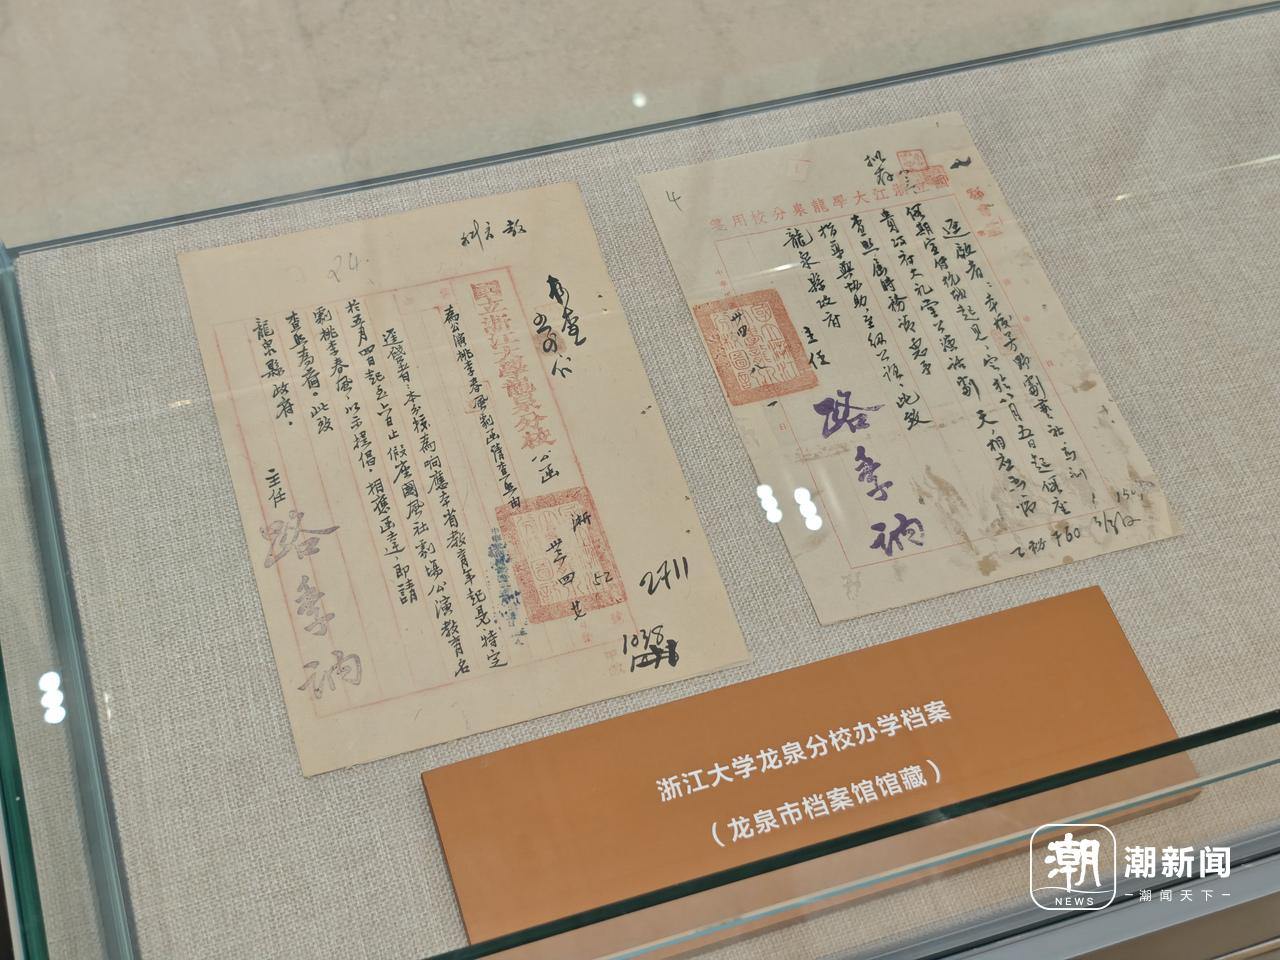 教
24.
國立浙江大學龍泉分校公函
為公演桃李春風劇函請查照由
逕啟者：本分校為响應本省教育年起見，特定
於五月四日起至六日止假座國風社劇場公演教育名
劇桃李春風，以示提倡，相應函達，即請
查照為荷。此致
龍泉縣政府。
主任
路季訥
浙
卅四
52
2711
1038
4
浙江大學龍泉分校用箋
逕啟者：本校芳野劇藝社為
假期宣傳抗戰起見，定於八月五日起假座
貴政府大礼堂公演話劇 天，相应函请
查照届時務派惠予
指導與協助，至級公誼，此致
龍泉縣政府
主任
路季訥
卅四 八
浙江大学龙泉分校办学档案
（龙泉市档案馆馆藏）
潮
NEWS
潮新闻
潮闻天下